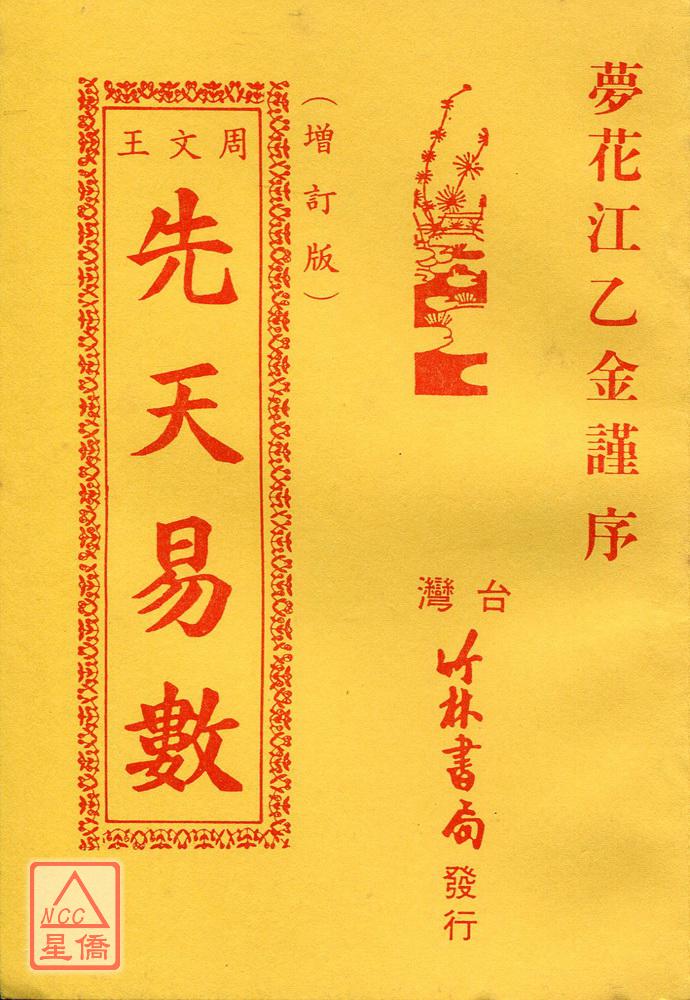 夢花江乙金謹序
台灣
竹林書局
發行
（增訂版）
周文王
先天易數
NCC
星僑